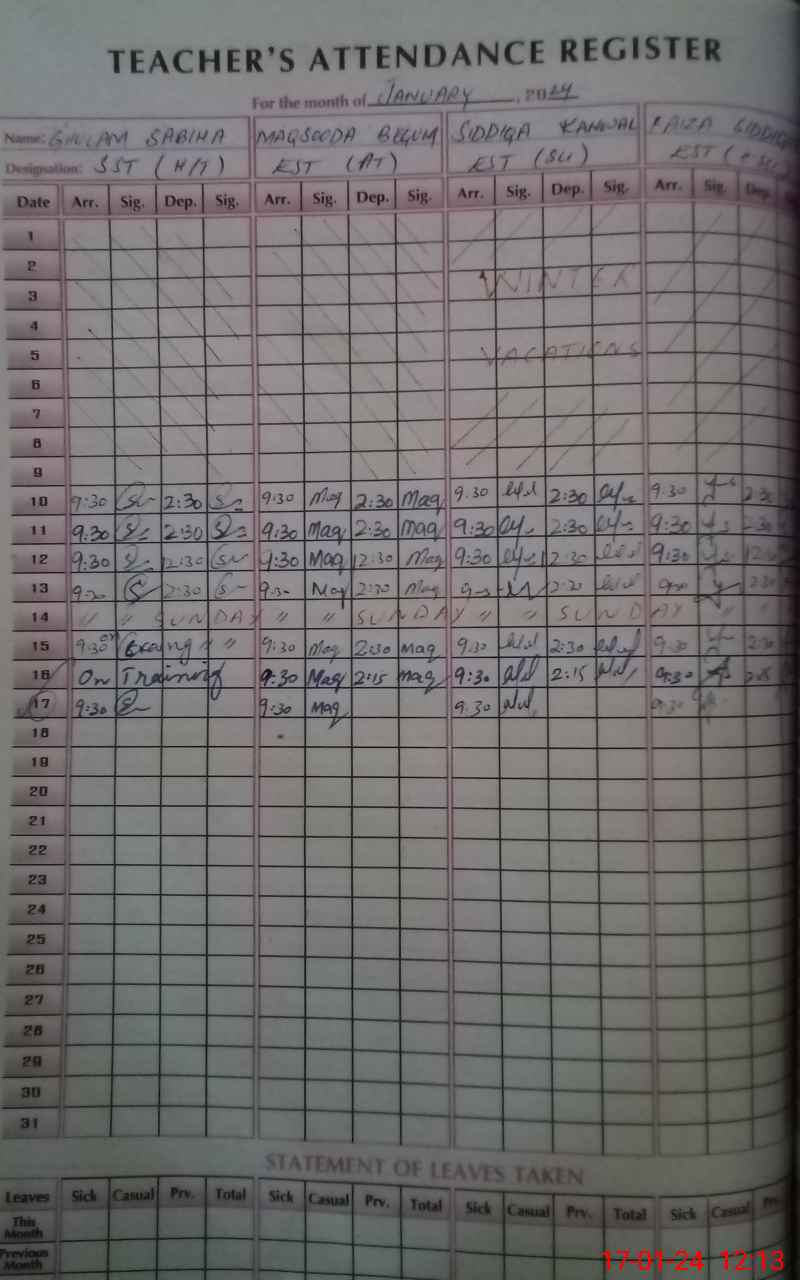 TEACHER'S ATTENDANCE REGISTER
For the month of JANUARY, 2024
Name: GHULAM SABIHA MAQSOODA BEGUM SIDDIQA KANWAL FAIZA SIDDIQ
Designation: SST (H/T) EST (AT) EST (Sci) EST
Date Arr. Sig. Dep. Sig. Arr. Sig. Dep. Sig. Arr. Sig. Dep. Sig. Arr. Sig. Dep.
1
2
WINTER
3
4
5 VACATIONS
6
7
8
9
10 9:30 2:30 9:30 Maq 2:30 Maq 9.30 2:30 9.30 2:30
11 9.30 2:30 9:30 Maq 2:30 Maq 9:30 2:30 9:30 2:30
12 9:30 12:30 9:30 Maq 12:30 Maq 9:30 12:30 9:30 12:30
13 9:30 2:30 9:30 Maq 2:30 Maq 2:30 2:30
14 " " SUNDAY " " SUNDAY " " SUNDAY " "
15 9:30 on " " 9:30 Maq 2:30 Maq 9.30 2:30 9.30 2:30
16 On Training 9:30 Maq 2:15 Maq 9:30 2:15 9:30 2:15
17 9:30 9:30 Maq 9.30 9:30
18
19
20
21
22
23
24
25
26
27
28
29
30
31
STATEMENT OF LEAVES TAKEN
Leaves Sick Casual Prv. Total Sick Casual Prv. Total Sick Casual Prv. Total Sick Casual Prv.
This Month
Previous Month
17-01-24 12:13